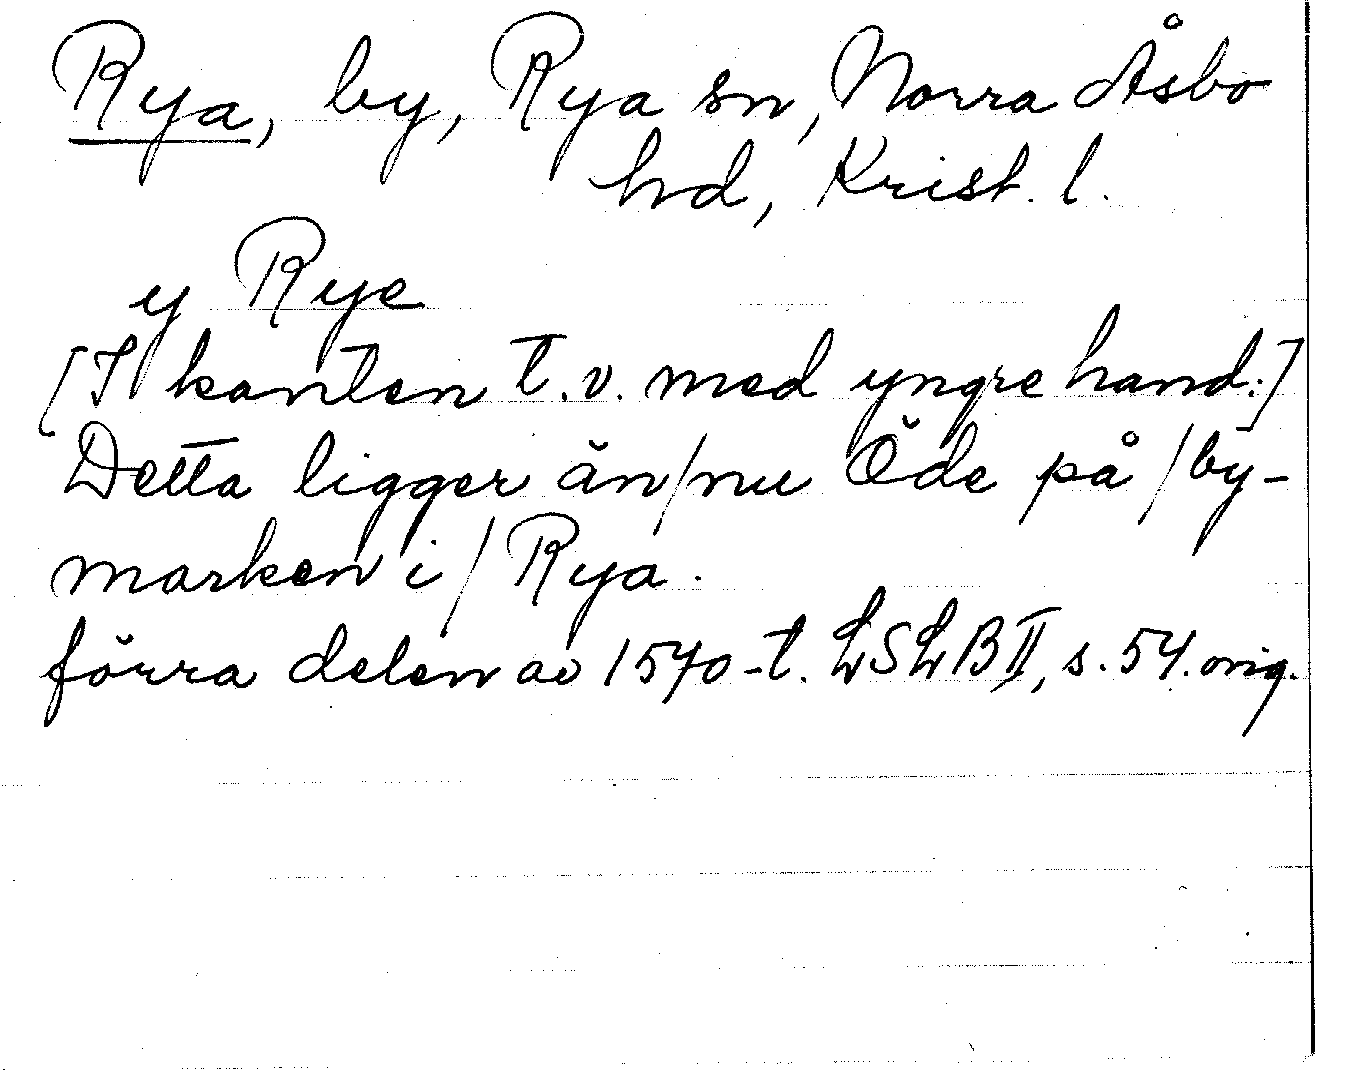 Rya, by, Rya sn, Norra Åsbo
hd, Krist. l.
y Rye
[I kanten t.v. med yngre hand:]
Detta ligger än/nu Öde på /by-
marken i/ Rya.
förra delen av 1570-t. LSLB II, s. 54. orig.